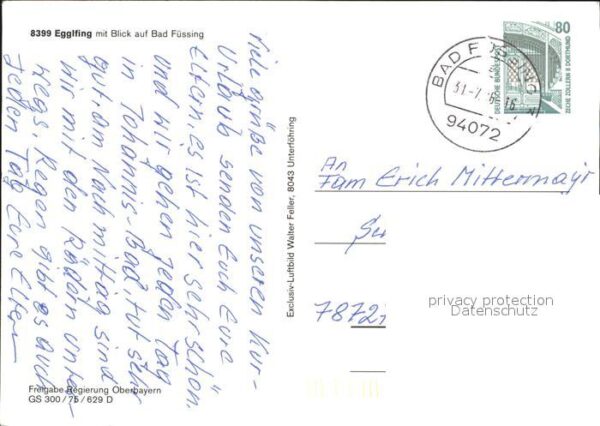 8399 Egglfing mit Blick auf Bad Füssing
Viele Grüße von unseren Kur-
Urlaub senden Euch Eure
Eltern, es ist hier sehr schön.
und wir gehen jeden Tag
in Johannis-Bad, tut sehr
gut am Nachmittag sind
wir mit den Rädern unter
wegs, Regen gibt es auch
jeden Tag Eure Eltern
Freigabe Regierung Oberbayern
GS 300 / 75 / 629 D
Exclusiv-Luftbild Walter Feller, 8043 Unterföhring
BAD FÜSSING
94072
80
DEUTSCHE BUNDESPOST
ZECHE ZOLLERN II DORTMUND
An
Fam Erich Mittermayr
7872
privacy protection
Datenschutz